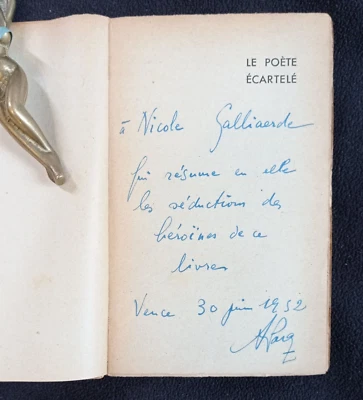 LE POÈTE
ÉCARTELÉ
à Nicole Galliaerde
qui résume en elle
les séductions des
héroïnes de ce
livre
Vence 30 juin 1952